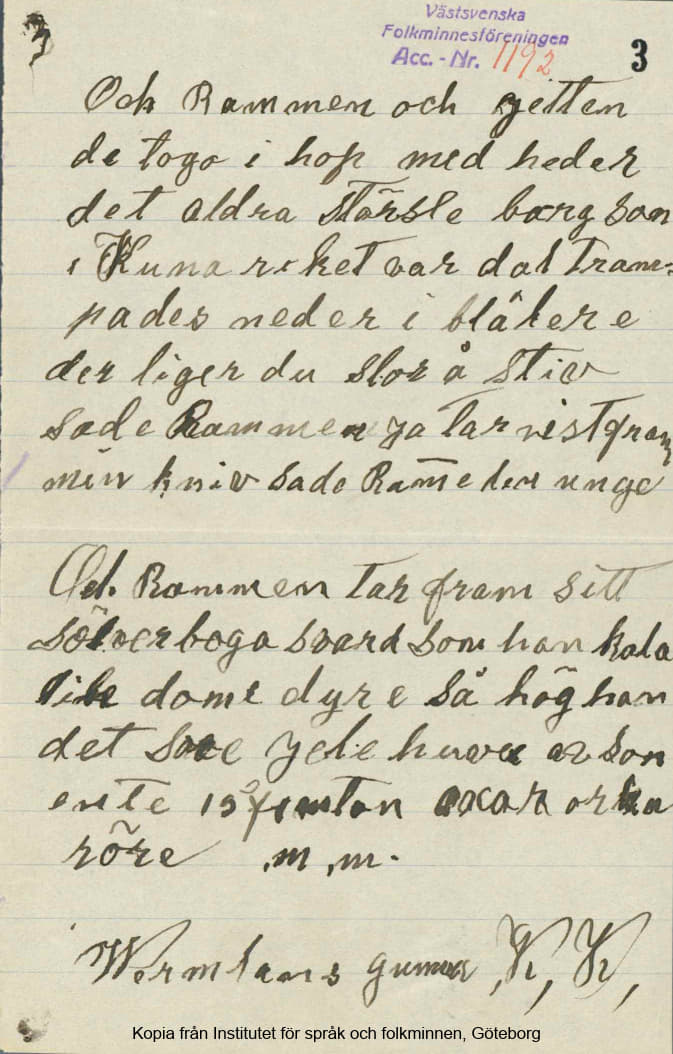 3
Västsvenska
Folkminnesföreningen
Acc. - Nr. 1192
3
Och Rammen och jetten
de togo i hop med heder
det aldra störste barg som
i Kuna riket var dat tram=
pades neder i blåkere
der liger du stor å stiv
sade Rammen ja tar vist fram
min kniv sade Rame den unge
Och Rammen tar fram sitt
sölverboga svard som han kala
dome dyre så hög han
det huve av som
ente 15 femton oxar orka
röre m, m.
Wermlans gumar, K, K,
Kopia från Institutet för språk och folkminnen, Göteborg